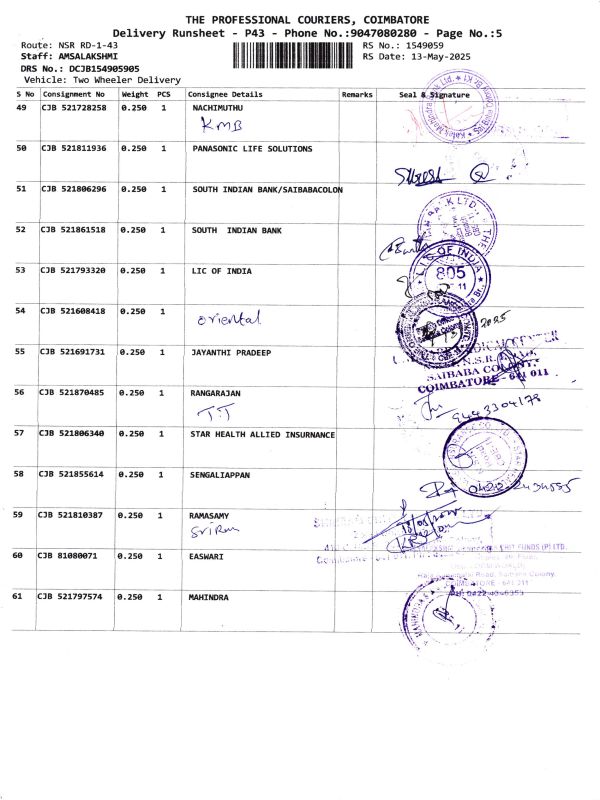 THE PROFESSIONAL COURIERS, COIMBATORE
Delivery Runsheet - P43 - Phone No.:9047080280 - Page No.:5
Route: NSR RD-1-43
RS No.: 1549059
Staff: AMSALAKSHMI
RS Date: 13-May-2025
DRS No.: DCJB154905905
Vehicle: Two Wheeler Delivery
S No Consignment No Weight PCS Consignee Details Remarks Seal & Signature
49 CJB 521728258 0.250 1 NACHIMUTHU
KMB
50 CJB 521811936 0.250 1 PANASONIC LIFE SOLUTIONS
Suresh
51 CJB 521806296 0.250 1 SOUTH INDIAN BANK/SAIBABACOLON
52 CJB 521861518 0.250 1 SOUTH INDIAN BANK
53 CJB 521793320 0.250 1 LIC OF INDIA
L.I.C OF INDIA
805
54 CJB 521608418 0.250 1
oriental
2025
55 CJB 521691731 0.250 1 JAYANTHI PRADEEP
N.S.R.
SAIBABA COLONY
COIMBATORE - 641 011
56 CJB 521870485 0.250 1 RANGARAJAN
TT
9443304178
57 CJB 521806340 0.250 1 STAR HEALTH ALLIED INSURNANCE
58 CJB 521855614 0.250 1 SENGALIAPPAN
59 CJB 521810387 0.250 1 RAMASAMY
Sri Ram
60 CJB 81080071 0.250 1 EASWARI
61 CJB 521797574 0.250 1 MAHINDRA